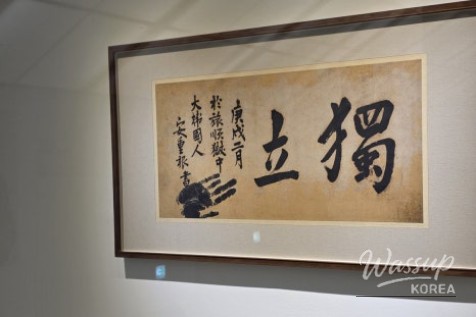 獨立
庚戌二月
於旅順獄中
大韓國人
安重根書
Wassup
KOREA